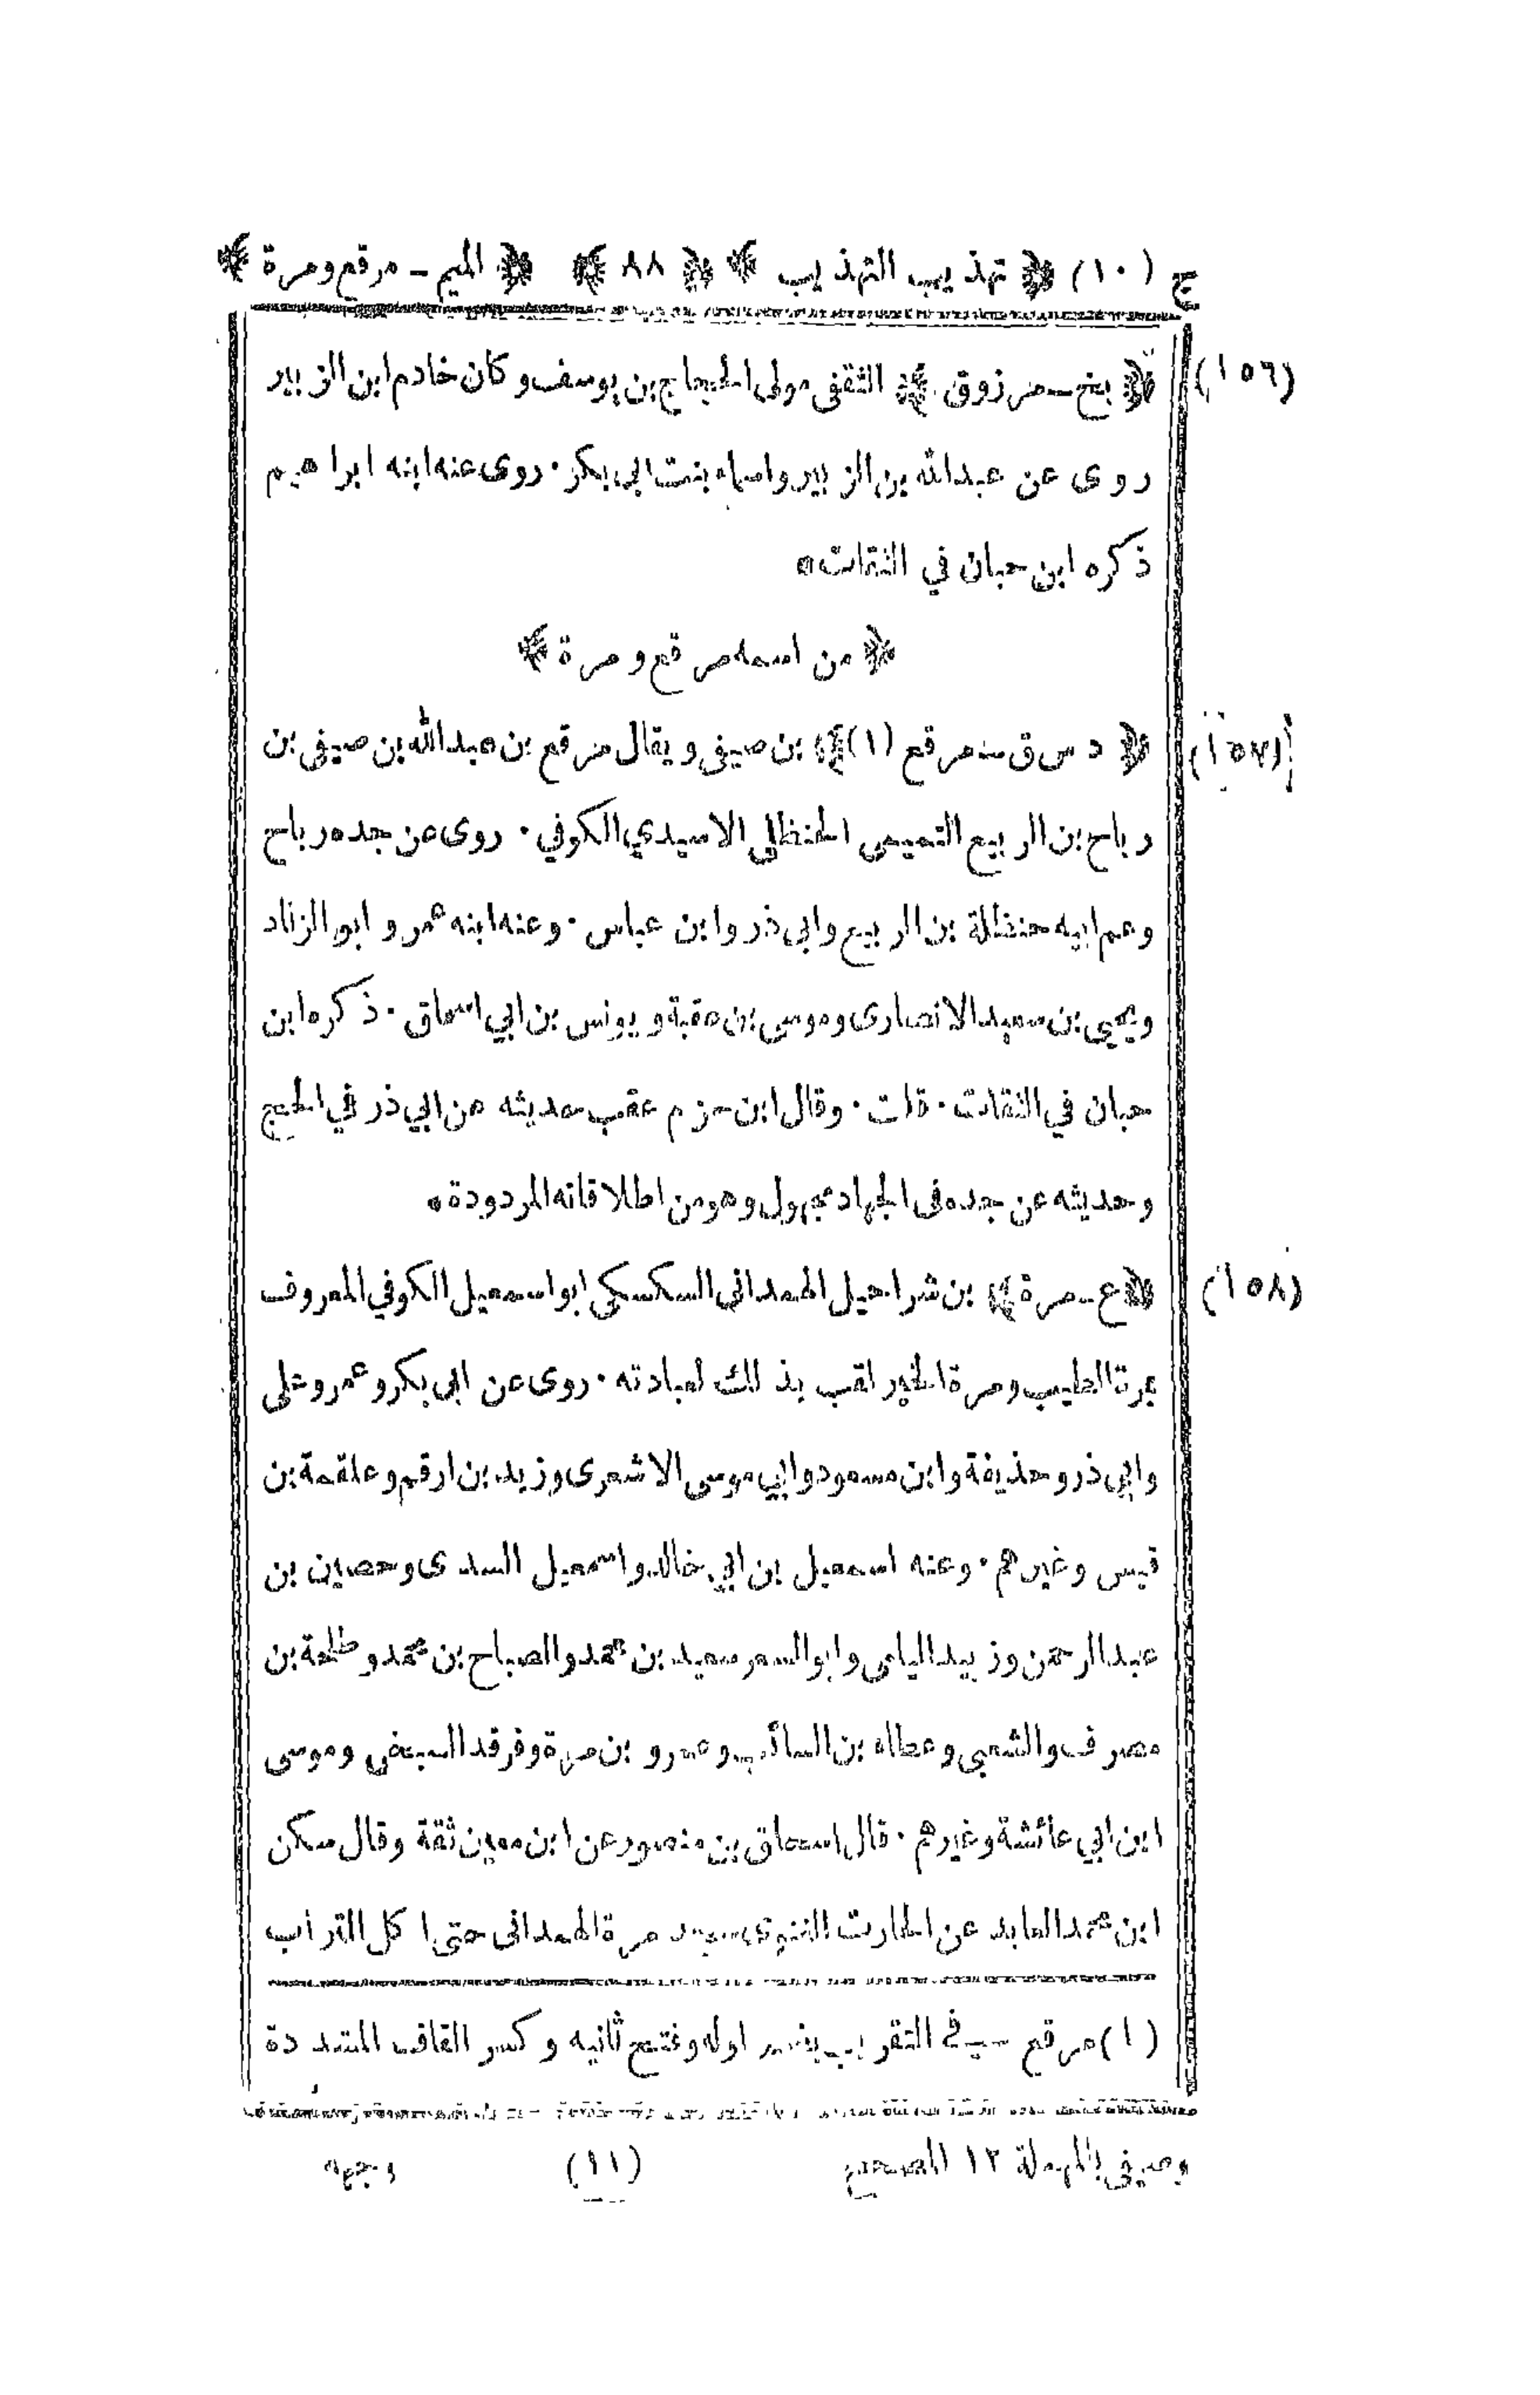 ج (١٠) ﴿ تهذيب التهذيب ﴾ ﴿ ٨٨ ﴾ ﴿ الميم ـ مرقع ومرة ﴾
(١٥٦) ﴿ بخ ـ مرزوق ﴾ الثقفي مولى الحجاج بن يوسف وكان خادم ابن الزبير
روى عن عبدالله بن الزبير واسماء بنت ابي بكر ٠ روى عنه ابنه ابراهيم
ذكره ابن حبان في الثقات ٥
﴿ من اسمه مرقع ومرة ﴾
(١٥٧) ﴿ د س ق ـ مرقع (١) ﴾ بن صيفى ويقال مرقع بن عبدالله بن صيفى بن
رباح بن الربيع التميمى الحنظلي الاسيدي الكوفي ٠ روى عن جده رباح
وعم ابيه حنظلة بن الربيع وابى ذر وابن عباس ٠ وعنه ابنه عمر و ابو الزناد
ويحيى بن سعيد الانصارى وموسى بن عقبة ويونس بن ابي اسحاق ٠ ذكره ابن
حبان في الثقات ٠ قلت ٠ وقال ابن حزم عقب حديثه عن ابي ذر في الحج
وحديثه عن جده فى الجهاد مجهول وهو من اطلاقاته المردودة ٥
(١٥٨) ﴿ ع ـ مرة ﴾ بن شراحيل الهمدانى السكسكي ابو اسمعيل الكوفي المعروف
بمرة الطيب ومرة الخير لقب بذلك لعبادته ٠ روى عن ابى بكر وعمر وعلى
وابى ذر وحذيفة وابن مسعود وابي موسى الاشعرى وزيد بن ارقم وعلقمة بن
قيس وغيرهم ٠ وعنه اسمعيل بن ابي خالد واسمعيل السدى وحصين بن
عبدالرحمن وزبيد اليامى وابو السفر سعيد بن محمد والصباح بن محمد وطلحة بن
مصرف والشعبى وعطاء بن السائب وعمرو بن مرة وفرقد السبخى وموسى
ابن ابي عائشة وغيرهم ٠ قال اسحاق بن منصور عن ابن معين ثقة وقال سكن
ابن محمد العابد عن الحارث الغنوى سجد مرة الهمدانى حتى اكل التراب
(١) مرقع ـ فى التقريب بضم اوله وفتح ثانيه وكسر القاف المشددة
وصيفى بالمهملة ١٢ المصحح (١١) وجهه